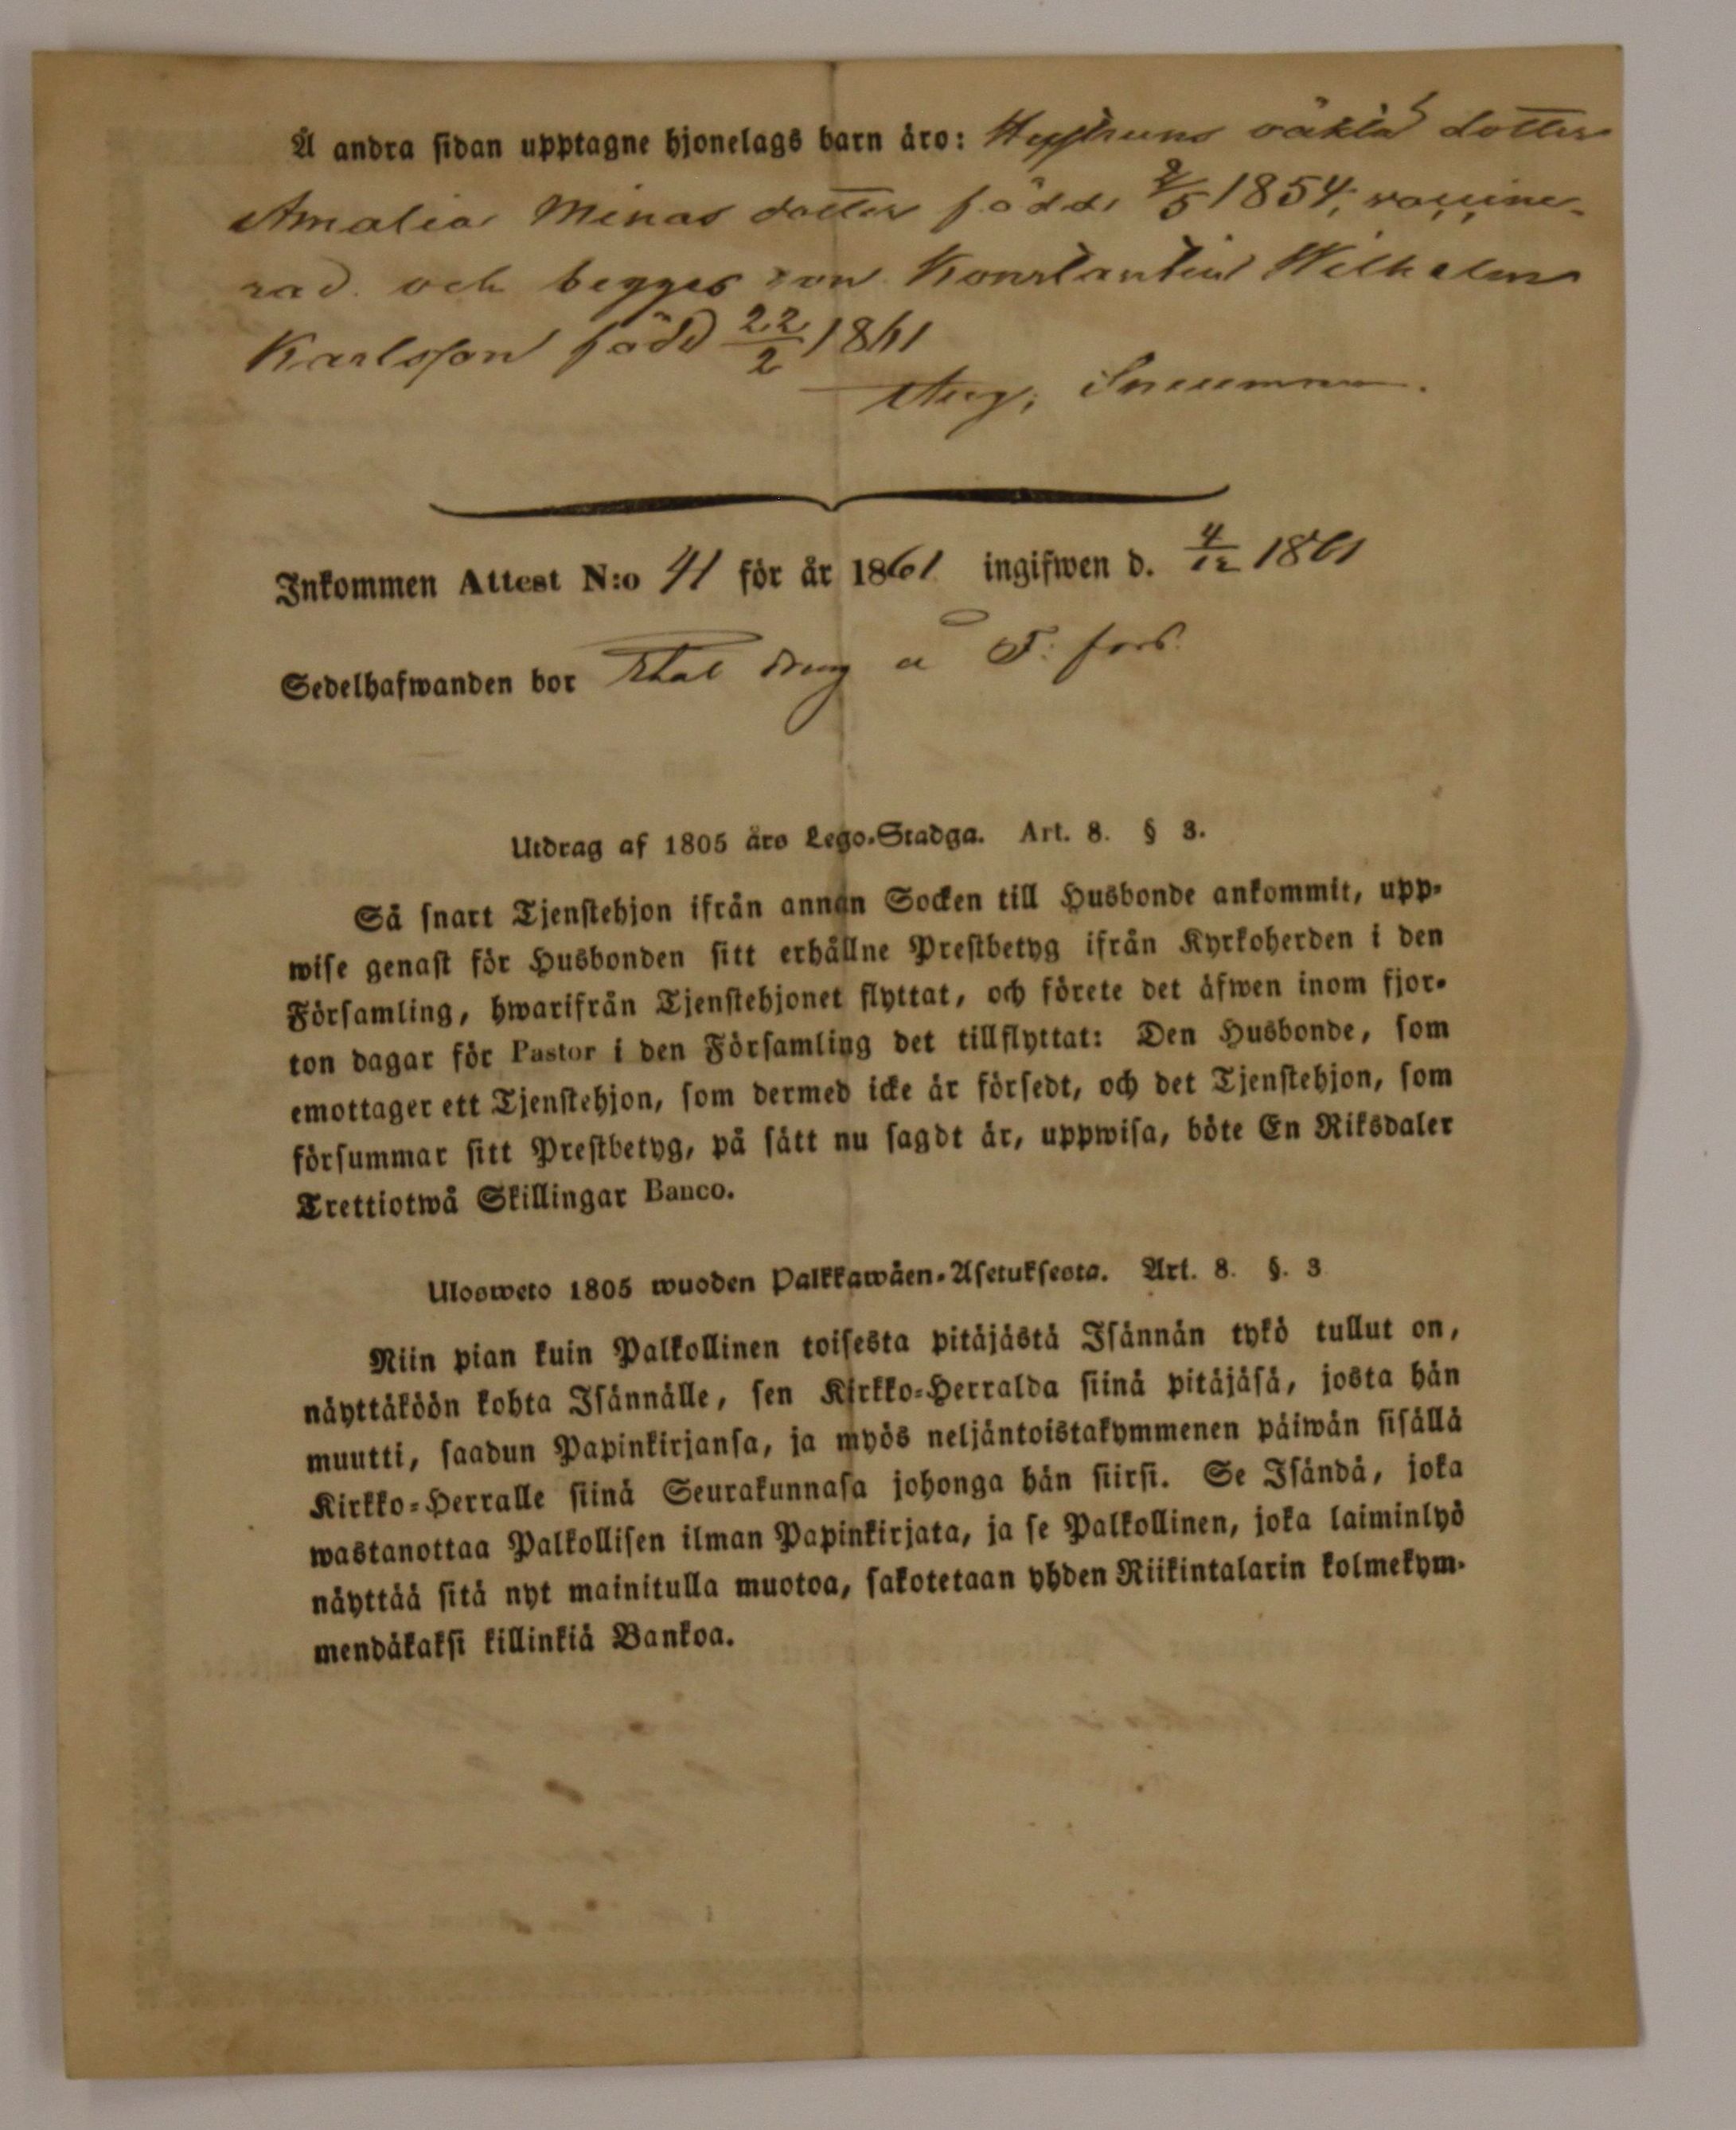 Å andra sidan upptagne hjonelags barn äro: Hustruns oäkta dotter
Amalia Minas dotter född 2/5 1854, vaccine-
rad. och begges son Konstantin Wilhelm
Karlsson född 22/2 1861
Aug:
Inkommen Attest N:o 41 för år 1861 ingifwen d. 4/12 1861
Sedelhafwanden bor dräng å F: fors.
Utdrag af 1805 års Lego-Stadga. Art. 8. § 3.
Så snart Tjenstehjon ifrån annan Socken till Husbonde ankommit, upp-
wise genast för Husbonden sitt erhållne Prestbetyg ifrån Kyrkoherden i den
Församling, hwarifrån Tjenstehjonet flyttat, och förete det äfwen inom fjor-
ton dagar för Pastor i den Församling det tillflyttat: Den Husbonde, som
emottager ett Tjenstehjon, som dermed icke är försedt, och det Tjenstehjon, som
försummar sitt Prestbetyg, på sätt nu sagdt är, uppwisa, böte En Riksdaler
Trettiotwå Skillingar Banco.
Ulosweto 1805 wuoden Palkkawäen-Asetuksesta. Art. 8. §. 3
Niin pian kuin Palkollinen toisesta pitäjästä Isännän tykö tullut on,
näyttäköön kohta Isännälle, sen Kirkko-Herralda siinä pitäjäsä, josta hän
muutti, saadun Papinkirjansa, ja myös neljäntoistakymmenen päiwän sisällä
Kirkko-Herralle siinä Seurakunnasa johonga hän siirsi. Se Isändä, joka
wastanottaa Palkollisen ilman Papinkirjata, ja se Palkollinen, joka laiminlyö
näyttää sitä nyt mainitulla muotoa, sakotetaan yhden Riikintalarin kolmekym-
mendäkaksi killinkiä Bankoa.